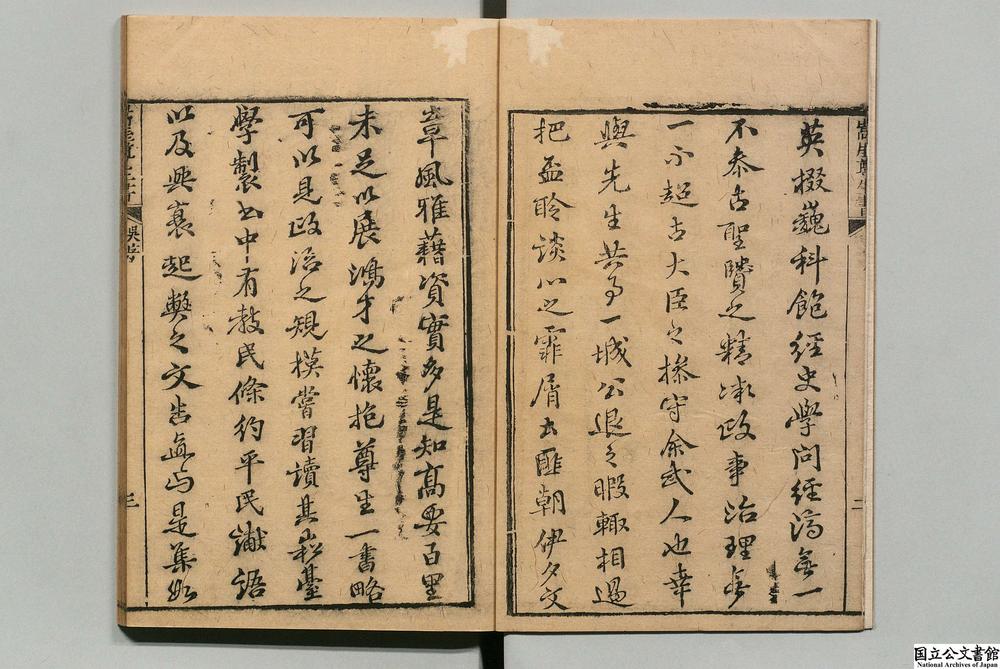 英掇巍科飽經史學問經濟無一
不參古聖賢之精微政事治理無
一不超古大臣之操守余武人也幸
與先生共事一城公退之暇輒相過
把盃聆談心之霏屑匪朝伊夕文
二
章風雅藉資實多是知高百里
未足以展鴻才之懷抱尊生一書略
可以見政治之規模嘗習讀其崧臺
學製書中有教民條約平民讞語
以及興衰起弊之文告是集如
三
国立公文書館
National Archives of Japan